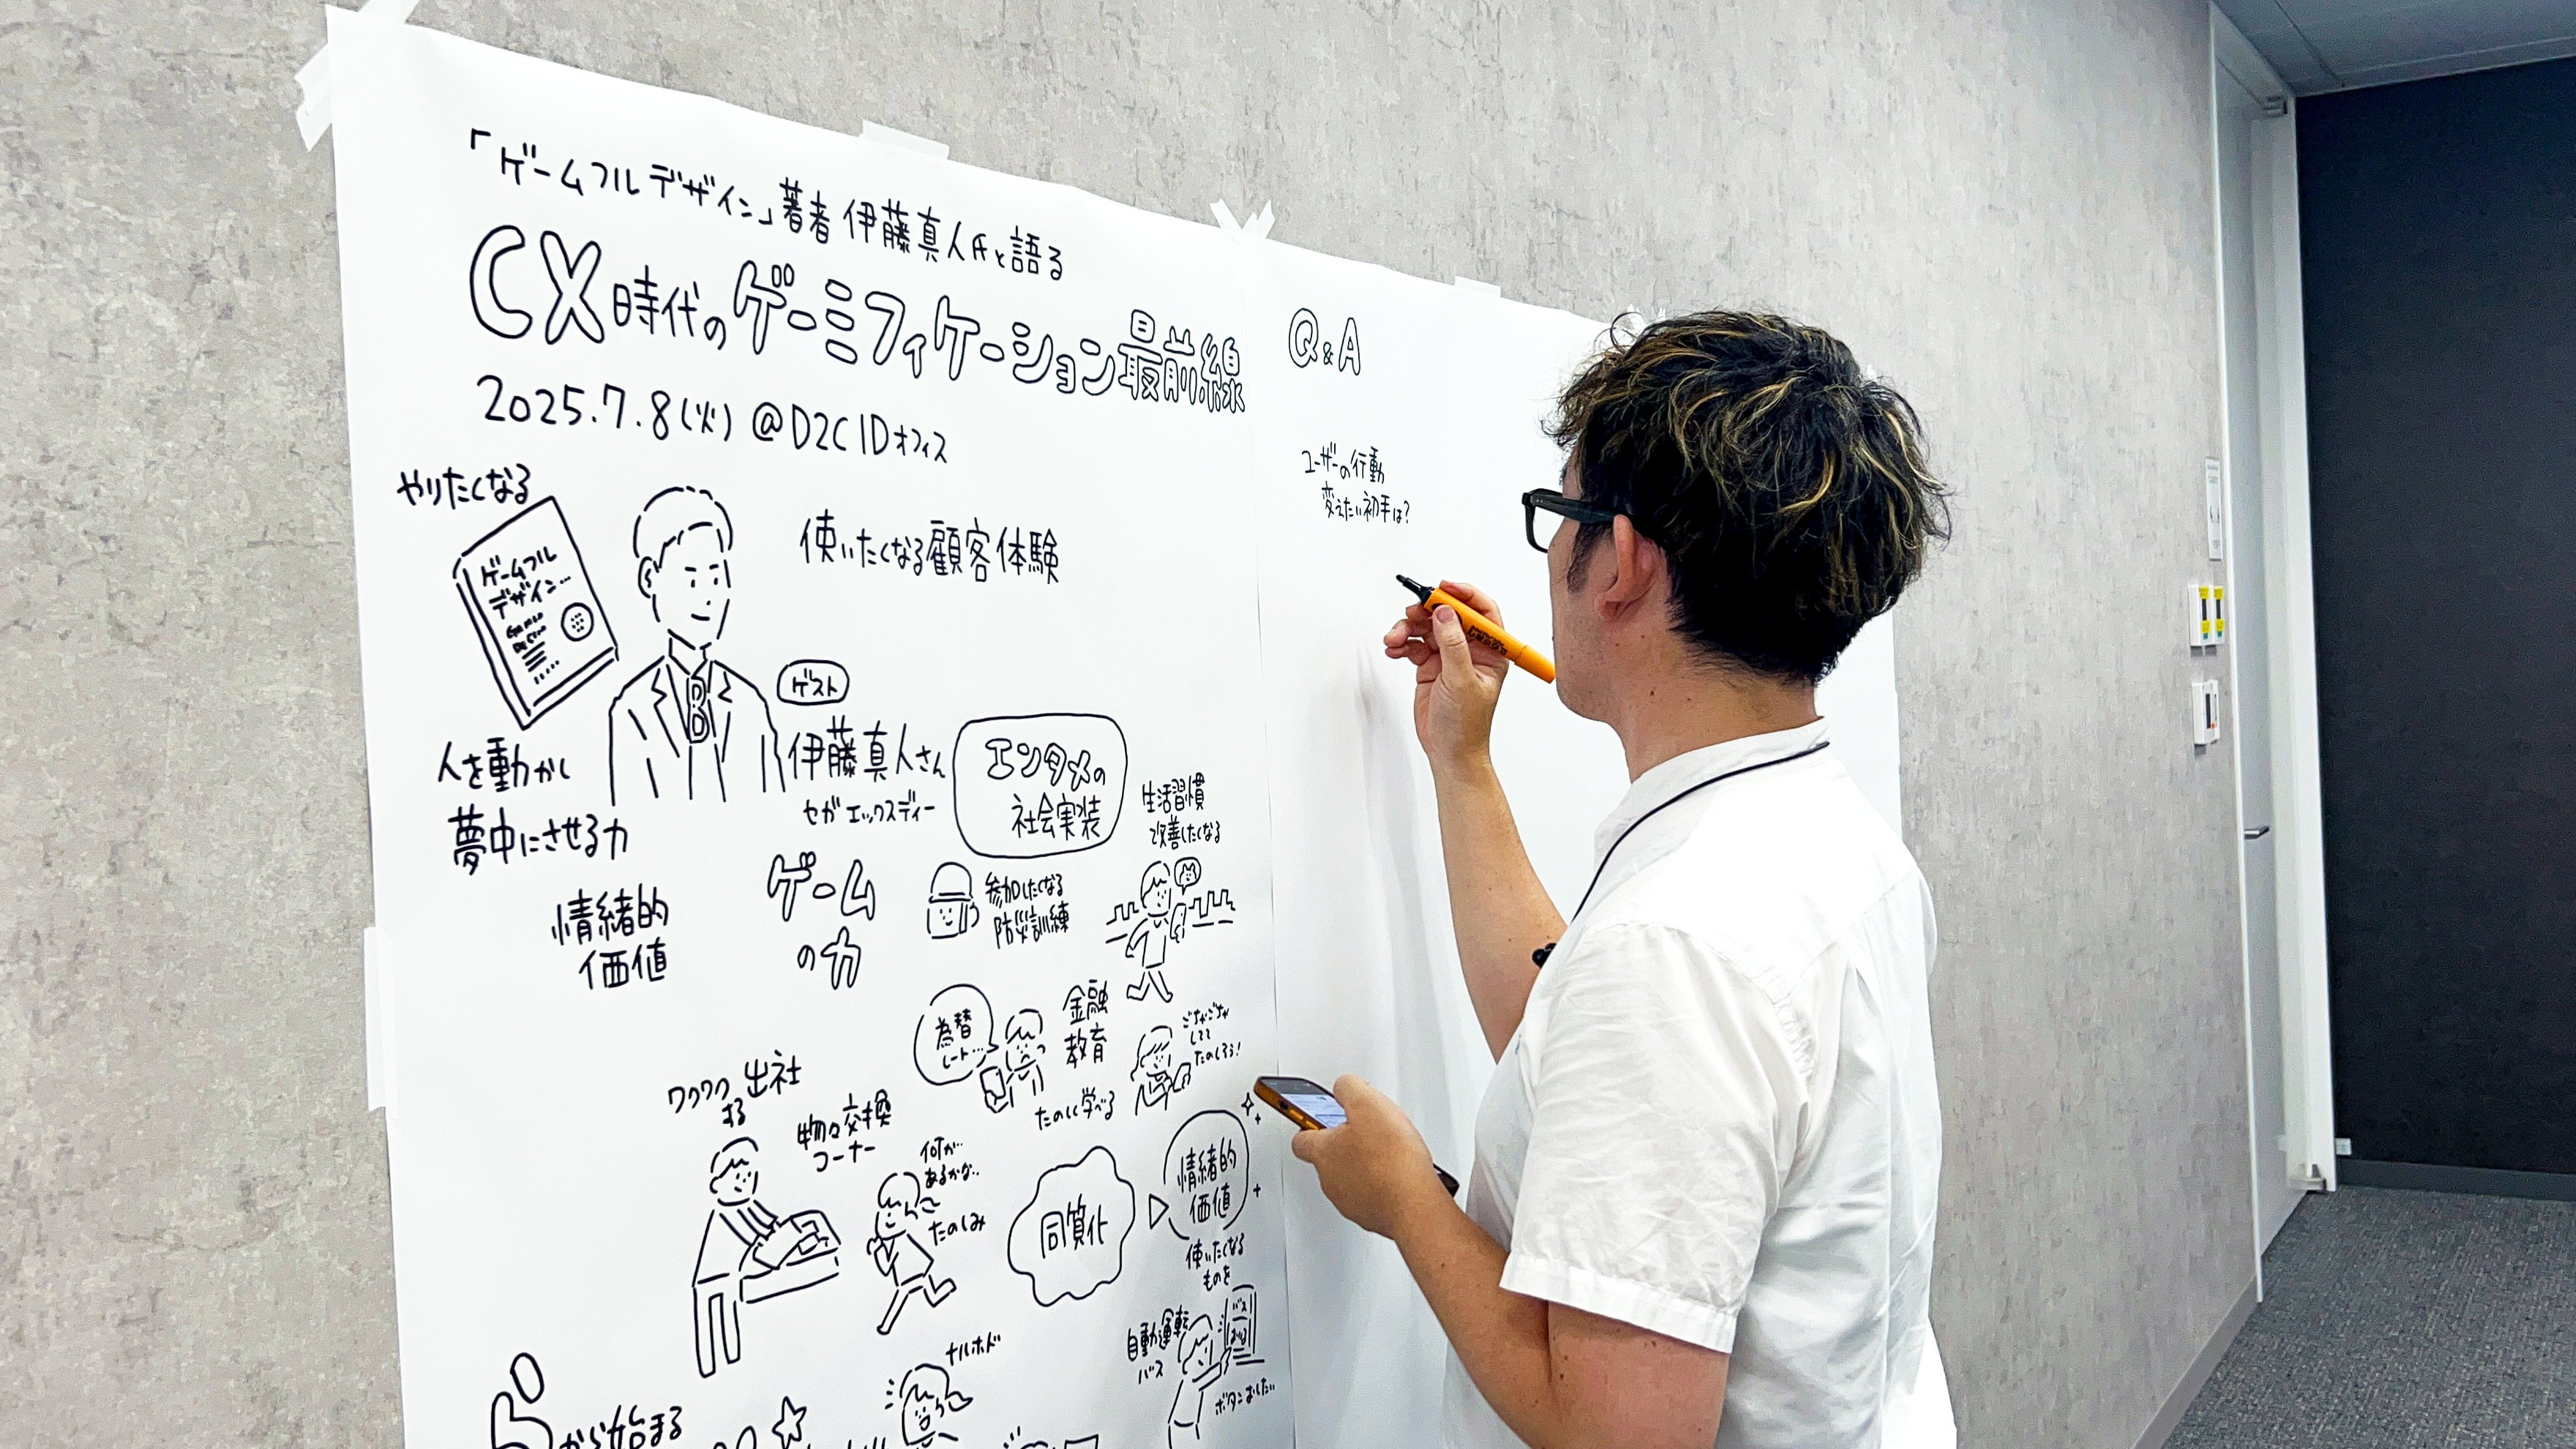 「ゲームフルデザイン」著者 伊藤真人氏と語る
CX時代のゲーミフィケーション最前線
2025.7.8(火) @D2C IDオフィス
やりたくなる
ゲームフル
デザイン…
使いたくなる顧客体験
ゲスト
伊藤真人さん
セガ エックスディー
人を動かし
夢中にさせる力
情緒的
価値
ゲーム
の力
エンタメの
社会実装
生活習慣
改善したくなる
参加したくなる
防災訓練
為替
レート…
金融
教育
たのしく学べる
ごちゃごちゃ
してて
たのしそう!
ワクワク
する
出社
物々交換
コーナー
何が…
あるかな…
たのしみ
同質化
情緒的
価値
使いたくなる
ものを
自動運転
バス
バス
ボタンおしたい
ナルホド
から始まる
Q&A
ユーザーの行動
変えたい初手は?